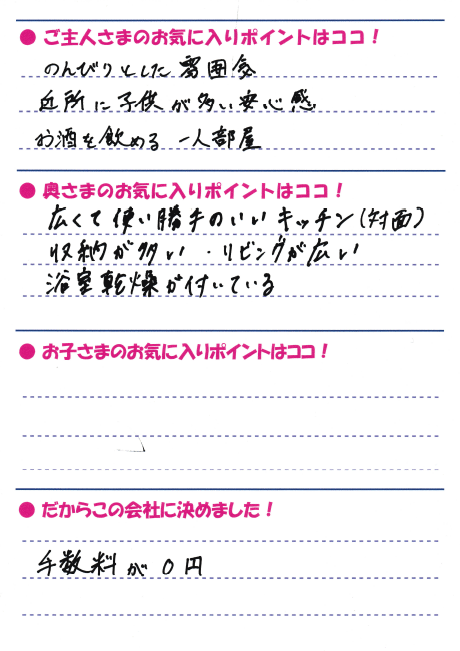 ● ご主人さまのお気に入りポイントはココ！
のんびりとした雰囲気
近所に子供が多い安心感
お酒を飲める 一人部屋
● 奥さまのお気に入りポイントはココ！
広くて使い勝手のいいキッチン(対面)
収納が多い・リビングが広い
浴室乾燥が付いている
● お子さまのお気に入りポイントはココ！
● だからこの会社に決めました！
手数料が0円